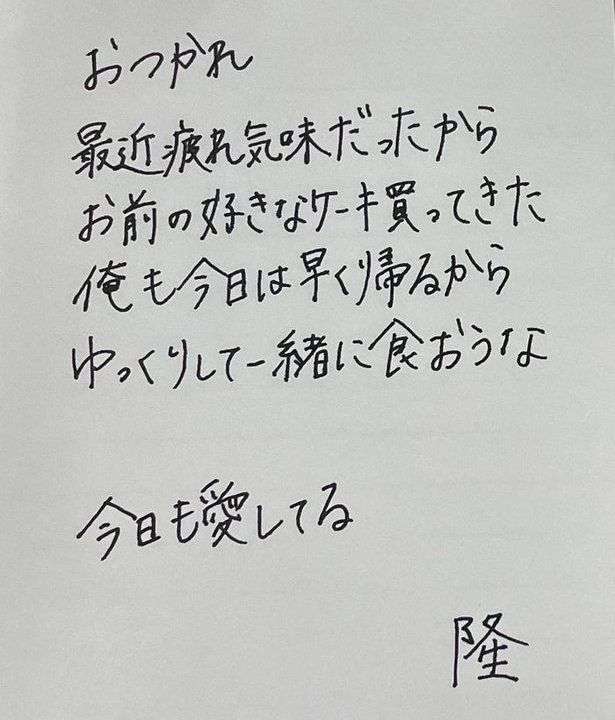 おつかれ
最近疲れ気味だったから
お前の好きなケーキ買ってきた
俺も今日は早く帰るから
ゆっくりして一緒に食おうな
今日も愛してる
隆